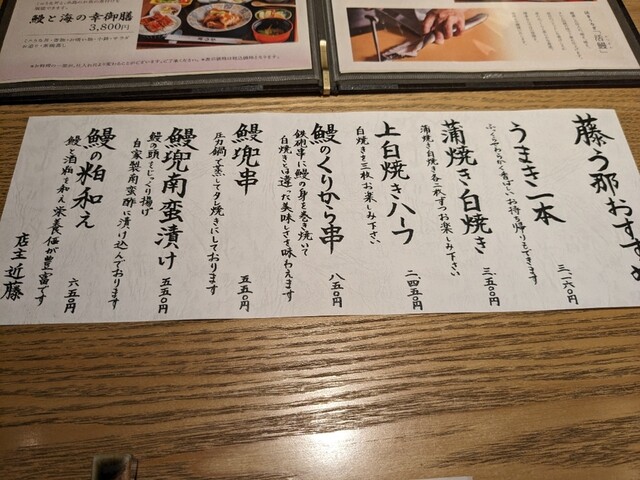 鰻と海の幸御膳
3,800円
藤う那おすすめ
うまき一本
ふっくらやわらかく香ばしい お持ち帰りもできます
三、一六〇円
蒲焼き白焼き
蒲焼き白焼き各二枚ずつお楽しみ下さい
三、五〇円
上白焼きハーフ
白焼きを三枚お楽しみ下さい
二、四五〇円
鰻のくりから串
鉄砲串に鰻の身を巻き焼いて
白焼きとは違った美味しさを味わえます
八五〇円
鰻兜串
圧力鍋で蒸してタレ焼きにしております
五五〇円
鰻兜南蛮漬け
鰻の頭をじっくり揚げ
自家製南蛮酢に漬け込んでおります
五五〇円
鰻の粕和え
鰻と酒粕を和え栄養価が豊富です
六五〇円
店主 近藤